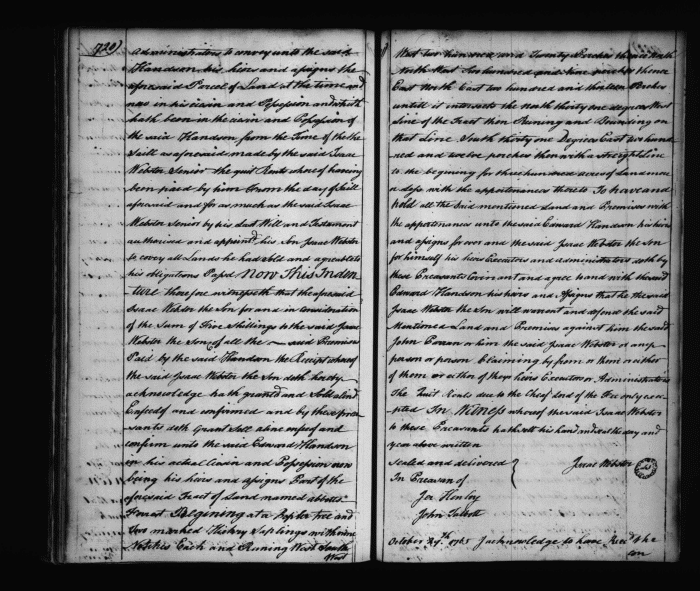 720)
Administrators to convey unto the said
Handson his heirs and assigns the
aforesaid Parcel of Land at the time and
now in his seisin and Possession and which
hath been in the seisin and Possession of
the said Handson from the Time of the the
Saill as aforesaid made by the said Isaac
Webster Senior the quit Rents whereof having
been paid by him from the day of Saill
aforesaid and for as much as the said Isaac
Webster Senior by his Last Will and Testament
authorised and appoint his Son Isaac Webster
to convey all Lands he had sold and agreeable to
his obligations Passd Now This Inden
ture therefore witnesseth that the aforesaid
Isaac Webster the Son for and in consideration
of the Sum of Five Shillings to the said Isaac
Webster the Son of all the said Premises
Paid by the said Handson the Receipt whereof
the said Isaac Webster the Son doth hereby
acknowledge hath granted and Sold aliend
Enfeofed and confirmed and by these pre
sents doth Grant Sell aliene enfeof and
confirm unto the said Edward Handson
in his actual Seisin and Possession now
being his heirs and assigns Part of the
aforesaid Tract of Land named abbotts
Forrest Begining at a Poplar tree and
two marked Hickory Saplings with nine
Notches Each and Runing West South
West
West two hundred and Twenty Perches thence North
North West Two hundred and nine perches thence
East North East two hundred and thirteen Perches
untill it intersects the north thirty one degrees West
Line of the Tract then Runing and Bounding on
that Line South thirty one Degrees East two hund
red and twelve perches then with a streight Line
to the begining for three hundred acres of Land more
or less with the appertenances thereto To have and
hold all the said mentioned Land and Premises with
the appertenances unto the said Edward Handson his heirs
and assigns for ever and the said Isaac Webster the Son
for himself his heirs Executors and administrators doth by
these Presents Covenant and agree to and with the said
Edward Handson his heirs and Assigns that he the said
Isaac Webster the Son will warrant and defend the said
Mentioned Land and Premises against him the said
John or him the said Isaac Webster or any
person or persons Claiming by from or them or either
of them or either of their heirs Executors or Administrators
The Quit Rents due to the Chief Lord of the Fee only exce
pted In Witness whereof the said Isaac Webster
to these Presents hath sett his hand and seal the day and
year above written
Sealed and delivered } Isaac Webster
In Presence of
Jos Henley
John Talbott
October 29th 1765 I acknowledge to have Recd of the